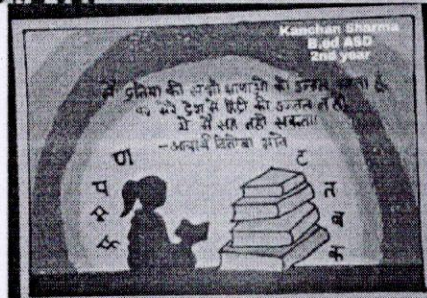 Kanchan Sharma
B.ed ASD
2nd year
मैं दुनिया की सभी भाषाओं की इज्जत करता हूँ,
पर मेरे देश में हिंदी की इज्जत न हो,
ये मैं सह नहीं सकता।
-आचार्य विनोबा भावे
ण ट
प त
ब
क